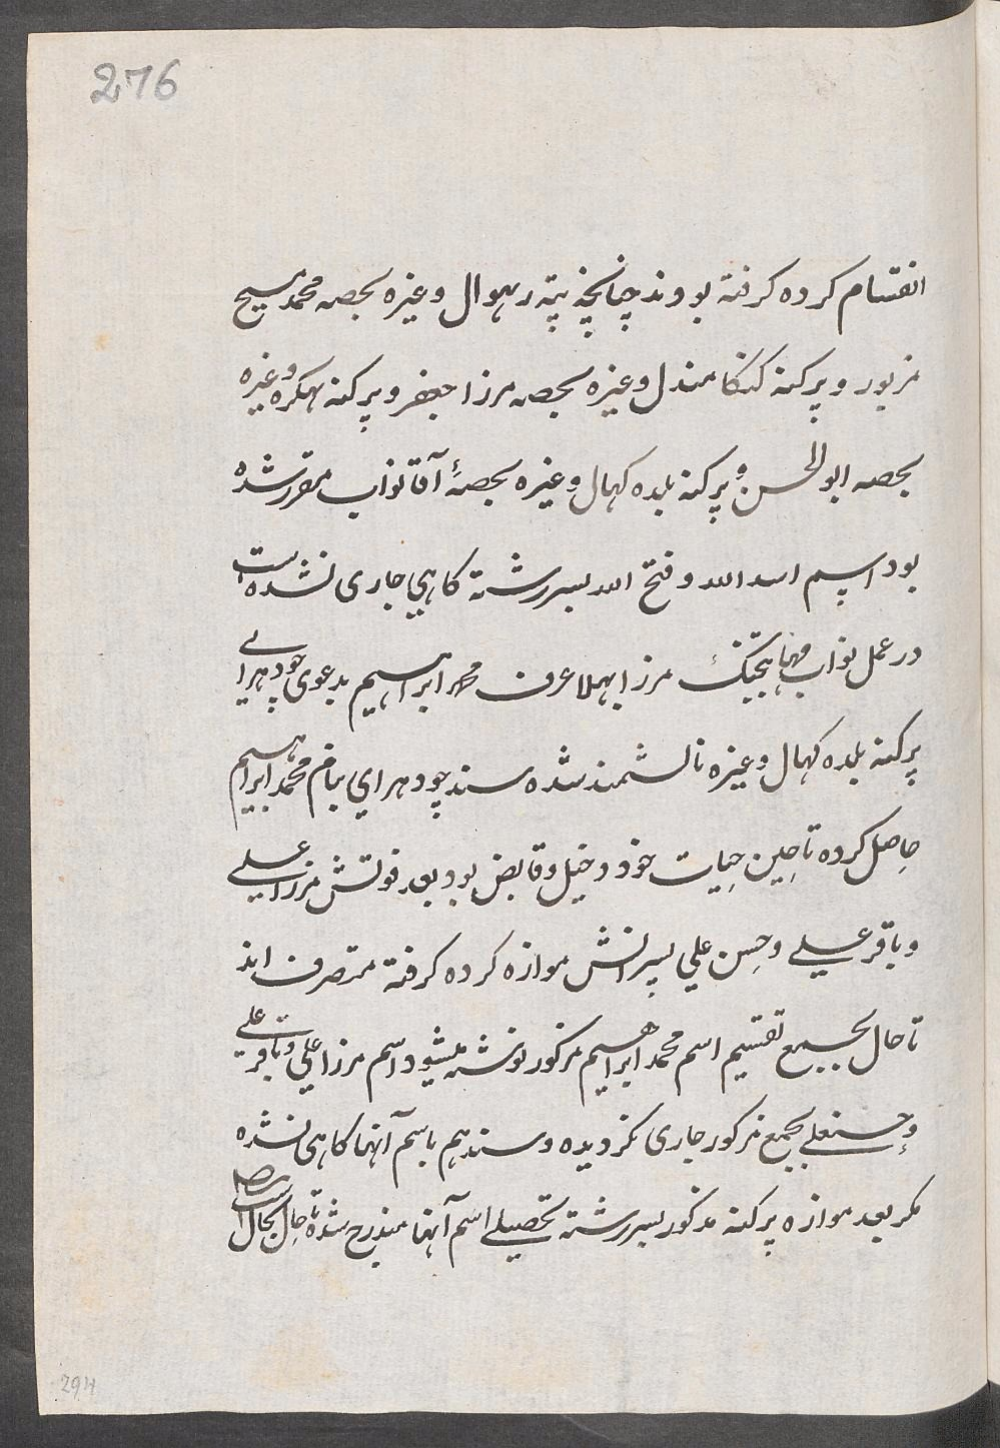 276
انقسام کرده کرفته بودند چنانچه پته رهوال وغیره بحصه محمد مسیح
مزبور و پرکنه کنکا مندل وغیره بحصه مرزا جعفر و پرکنه بهکره وغیره
بحصه ابوالحسن و پرکنه بلده کهال وغیره بحصهٔ آقا نواب مقرر شده
بود اسم اسد الله و فتح الله بسررشته کاهی جاری نشده است
در عمل نواب مهابتجنک مرزا بهلا عرف محمد ابراهیم بدعوی چودهرائے
پرکنه بلده کهال وغیره نالشمند شده سند چودهرای بنام محمد ابراهیم
حاصل کرده تا حین حیات خود دخیل و قابض بود بعد فوتش مرزا علے
و باقر علے و حسن علی پسرانش موازه کرده کرفته متصرف اند
تا حال بجمیع تقسیم اسم محمد ابراهیم مذکور نوشته میشود اسم مرزا علی و باقر علے
و حسنعلے بجمع مذکور جاری نکردیده و سند هم باسم آنها کاهی نشده
مکر بعد موازه پرکنه مذکور بسررشته تحصیلے اسم آنها مندرج شده تا حال بحال است
294